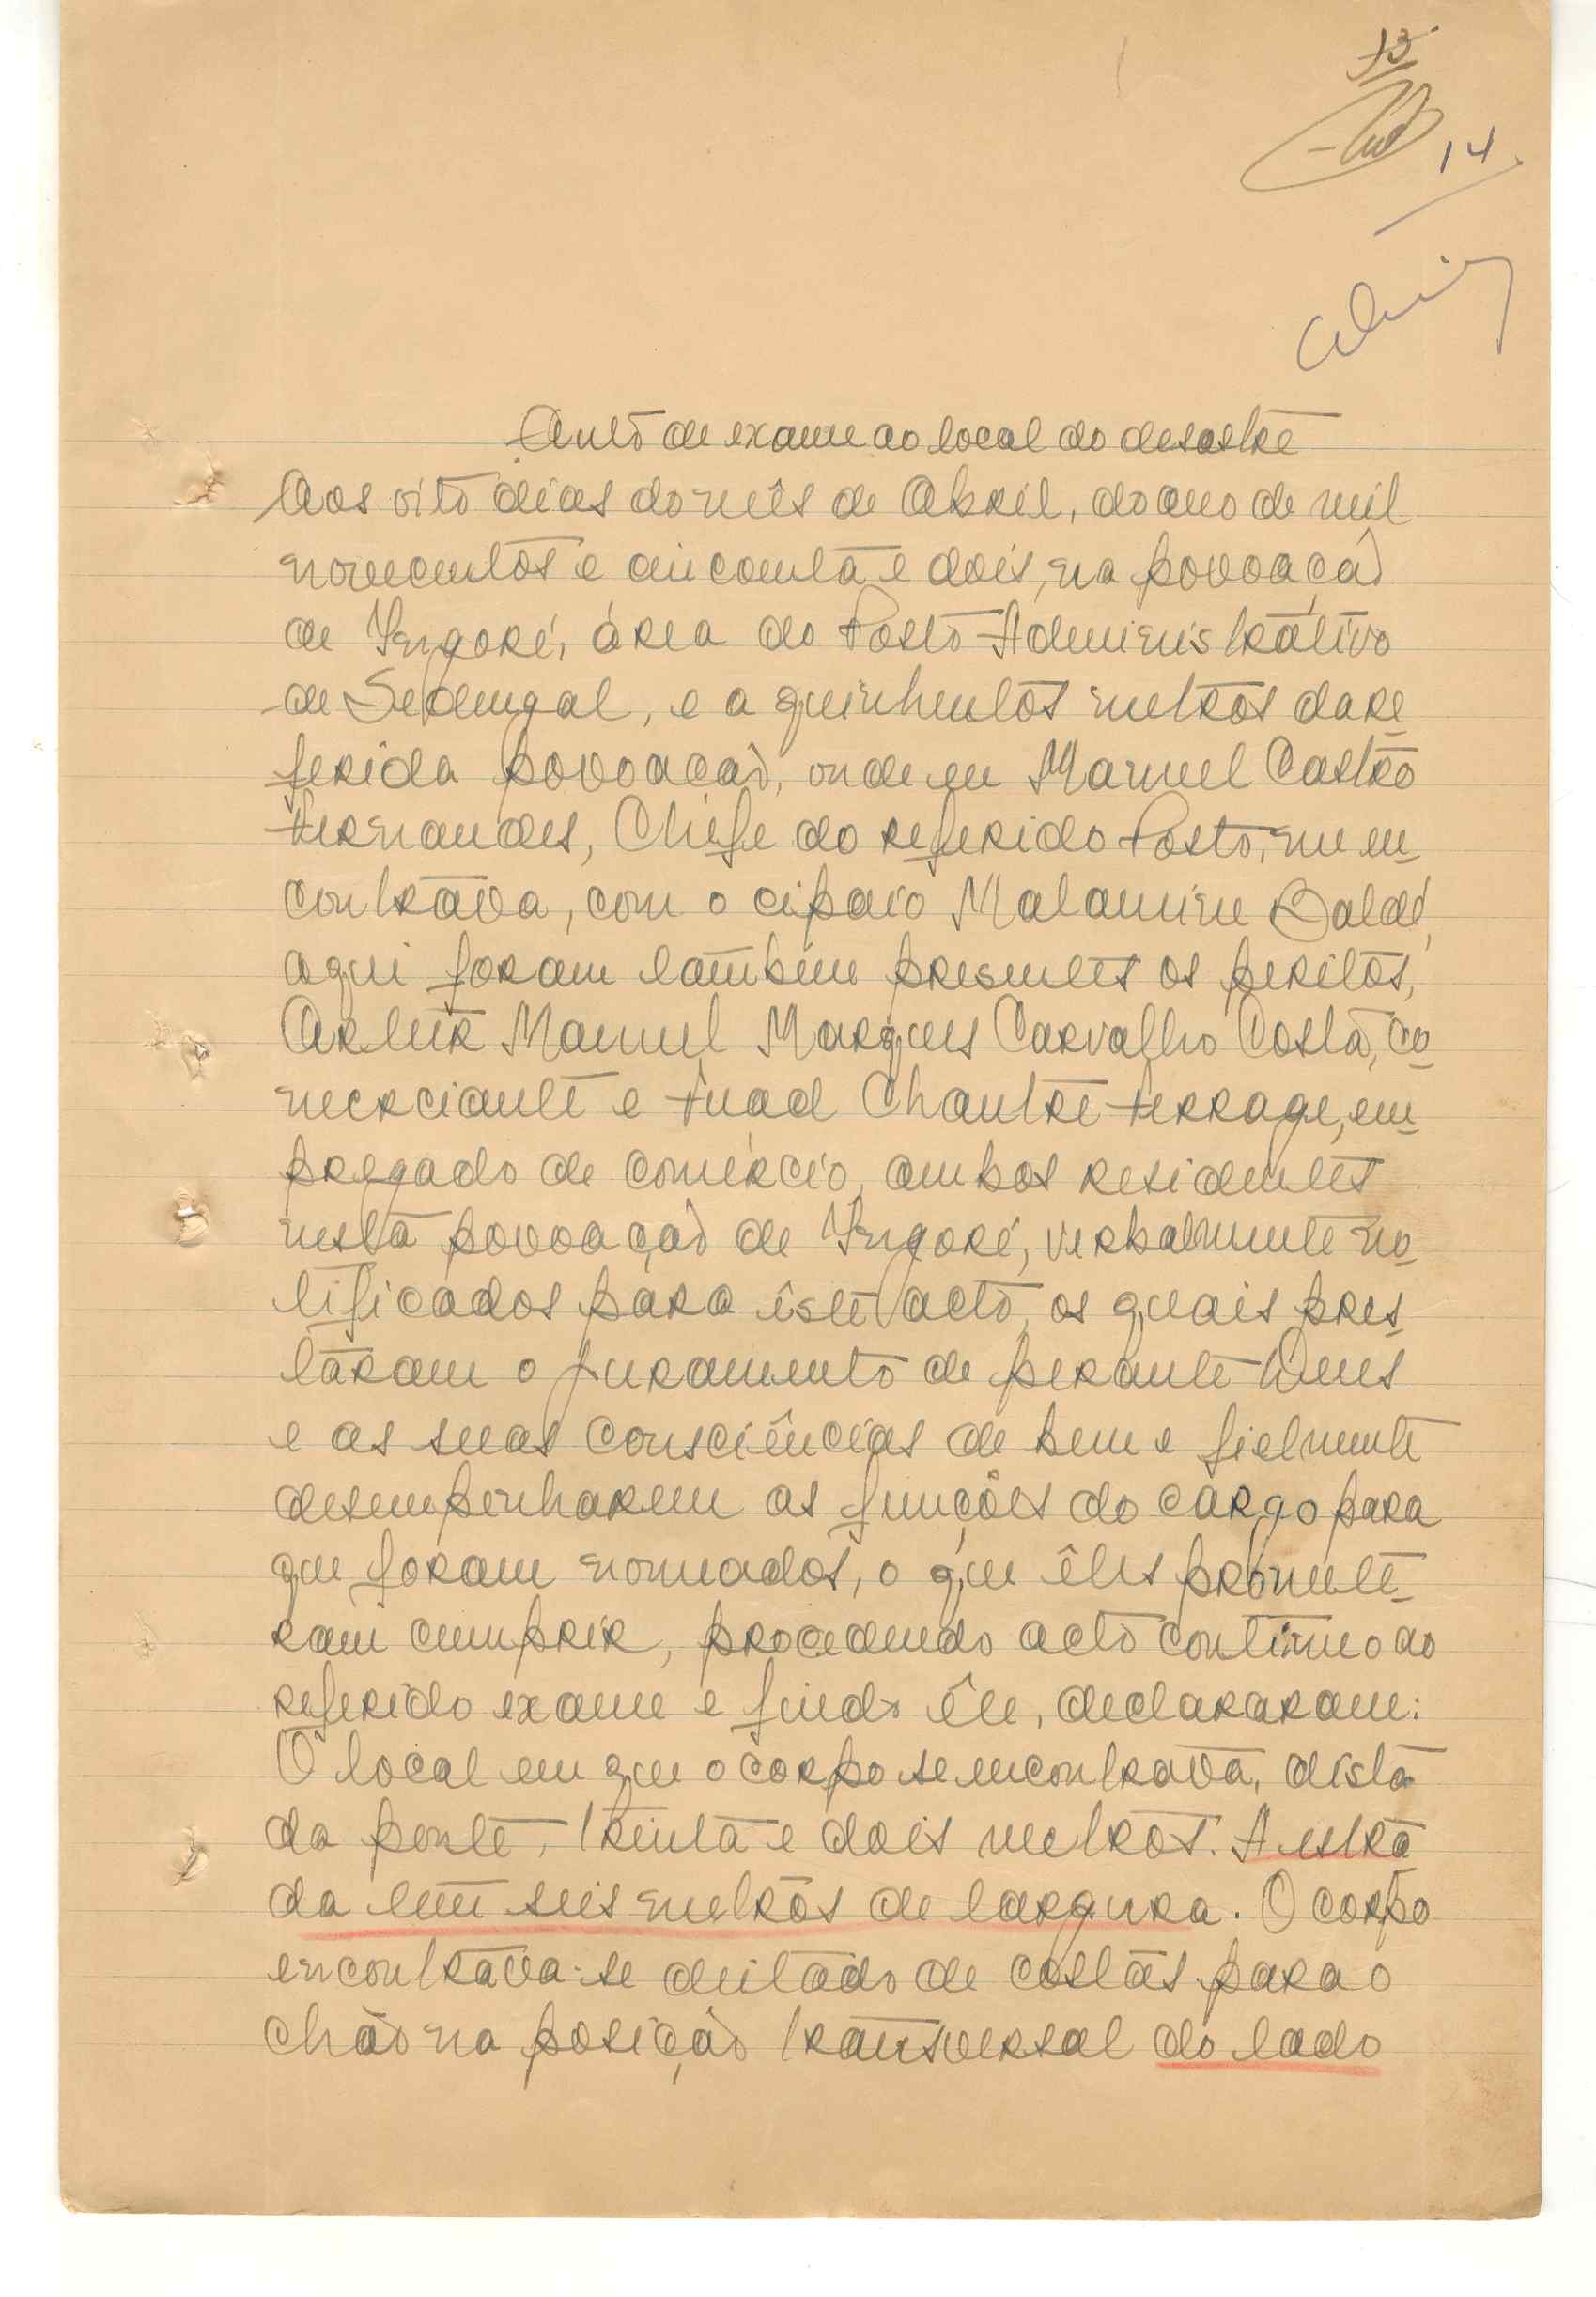 13
14
Auto de exame ao local do desastre
Aos oito dias do mês de Abril, do ano de mil
novecentos e cincoenta e dois, na povoação
de Ingoré, área do Posto Administrativo
de Sedengal, e a quinhentos metros da re-
ferida povoação, onde eu Manuel Castro
Fernandes, Chefe do referido Posto, me en-
contrava, com o cipaio Malamine Baldé,
aqui foram também presentes os peritos,
Artur Manuel Marques Carvalho Costa, co-
merciante e Fuad Chantre Ferrage, em-
pregado de comércio, ambos residentes
nesta povoação de Ingoré, verbalmente no-
tificados para êste acto, os quais pres-
taram o juramento de perante Deus
e as suas consciências de bem e fielmente
desempenharem as funções do cargo para
que foram nomeados, o que êles promete-
ram cumprir, procedendo acto continuo ao
referido exame e findo êle, declararam:
O local em que o corpo se encontrava, dista
da ponte, trinta e dois metros. A estra
da tem seis metros de largura. O corpo
encontrava-se deitado de costas para o
chão na posição transversal do lado